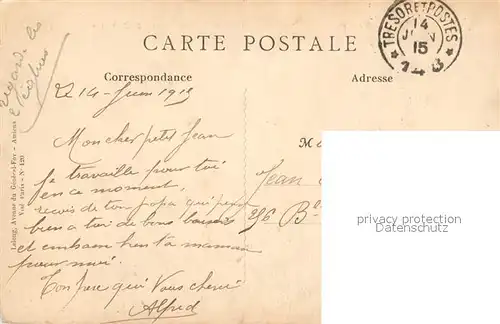 CARTE POSTALE
TRESOR ET POSTES
14
JUIN
15
* 148 *
Correspondance
Adresse
Regarde les
Lelong, Avenue du Général-Foy - Amiens
Vod Paris - N° 120
Le 14 Juin 1915
Mon cher petit Jean
Je travaille pour toi
en ce moment,
reçois de ton papa qui pense
bien a toi de bons baisers
et embrasse bien ta maman
pour moi.
Ton père qui vous chérie
Alfred
M
Jean
56 Bd
privacy protection
watermark